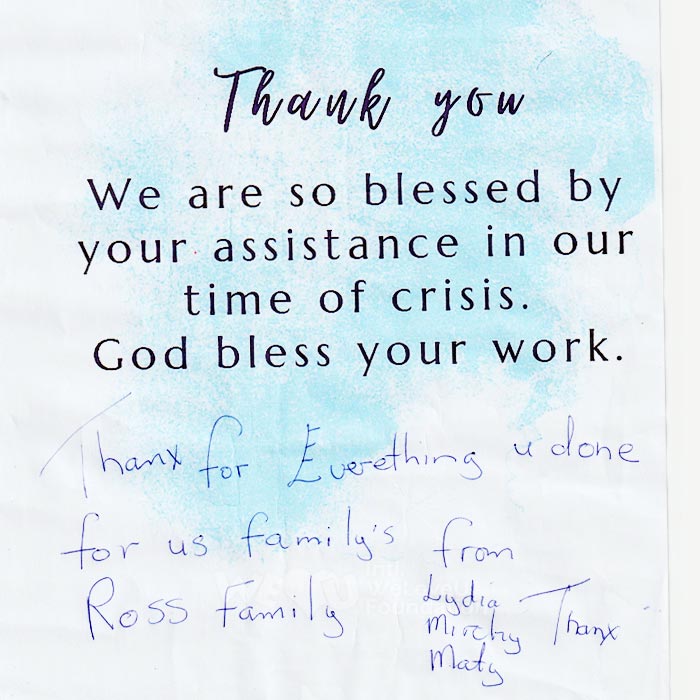 Thank you
We are so blessed by
your assistance in our
time of crisis.
God bless your work.
Thanx for Everething u done
for us family's from
Ross Family
Lydia
Thanx
Maty